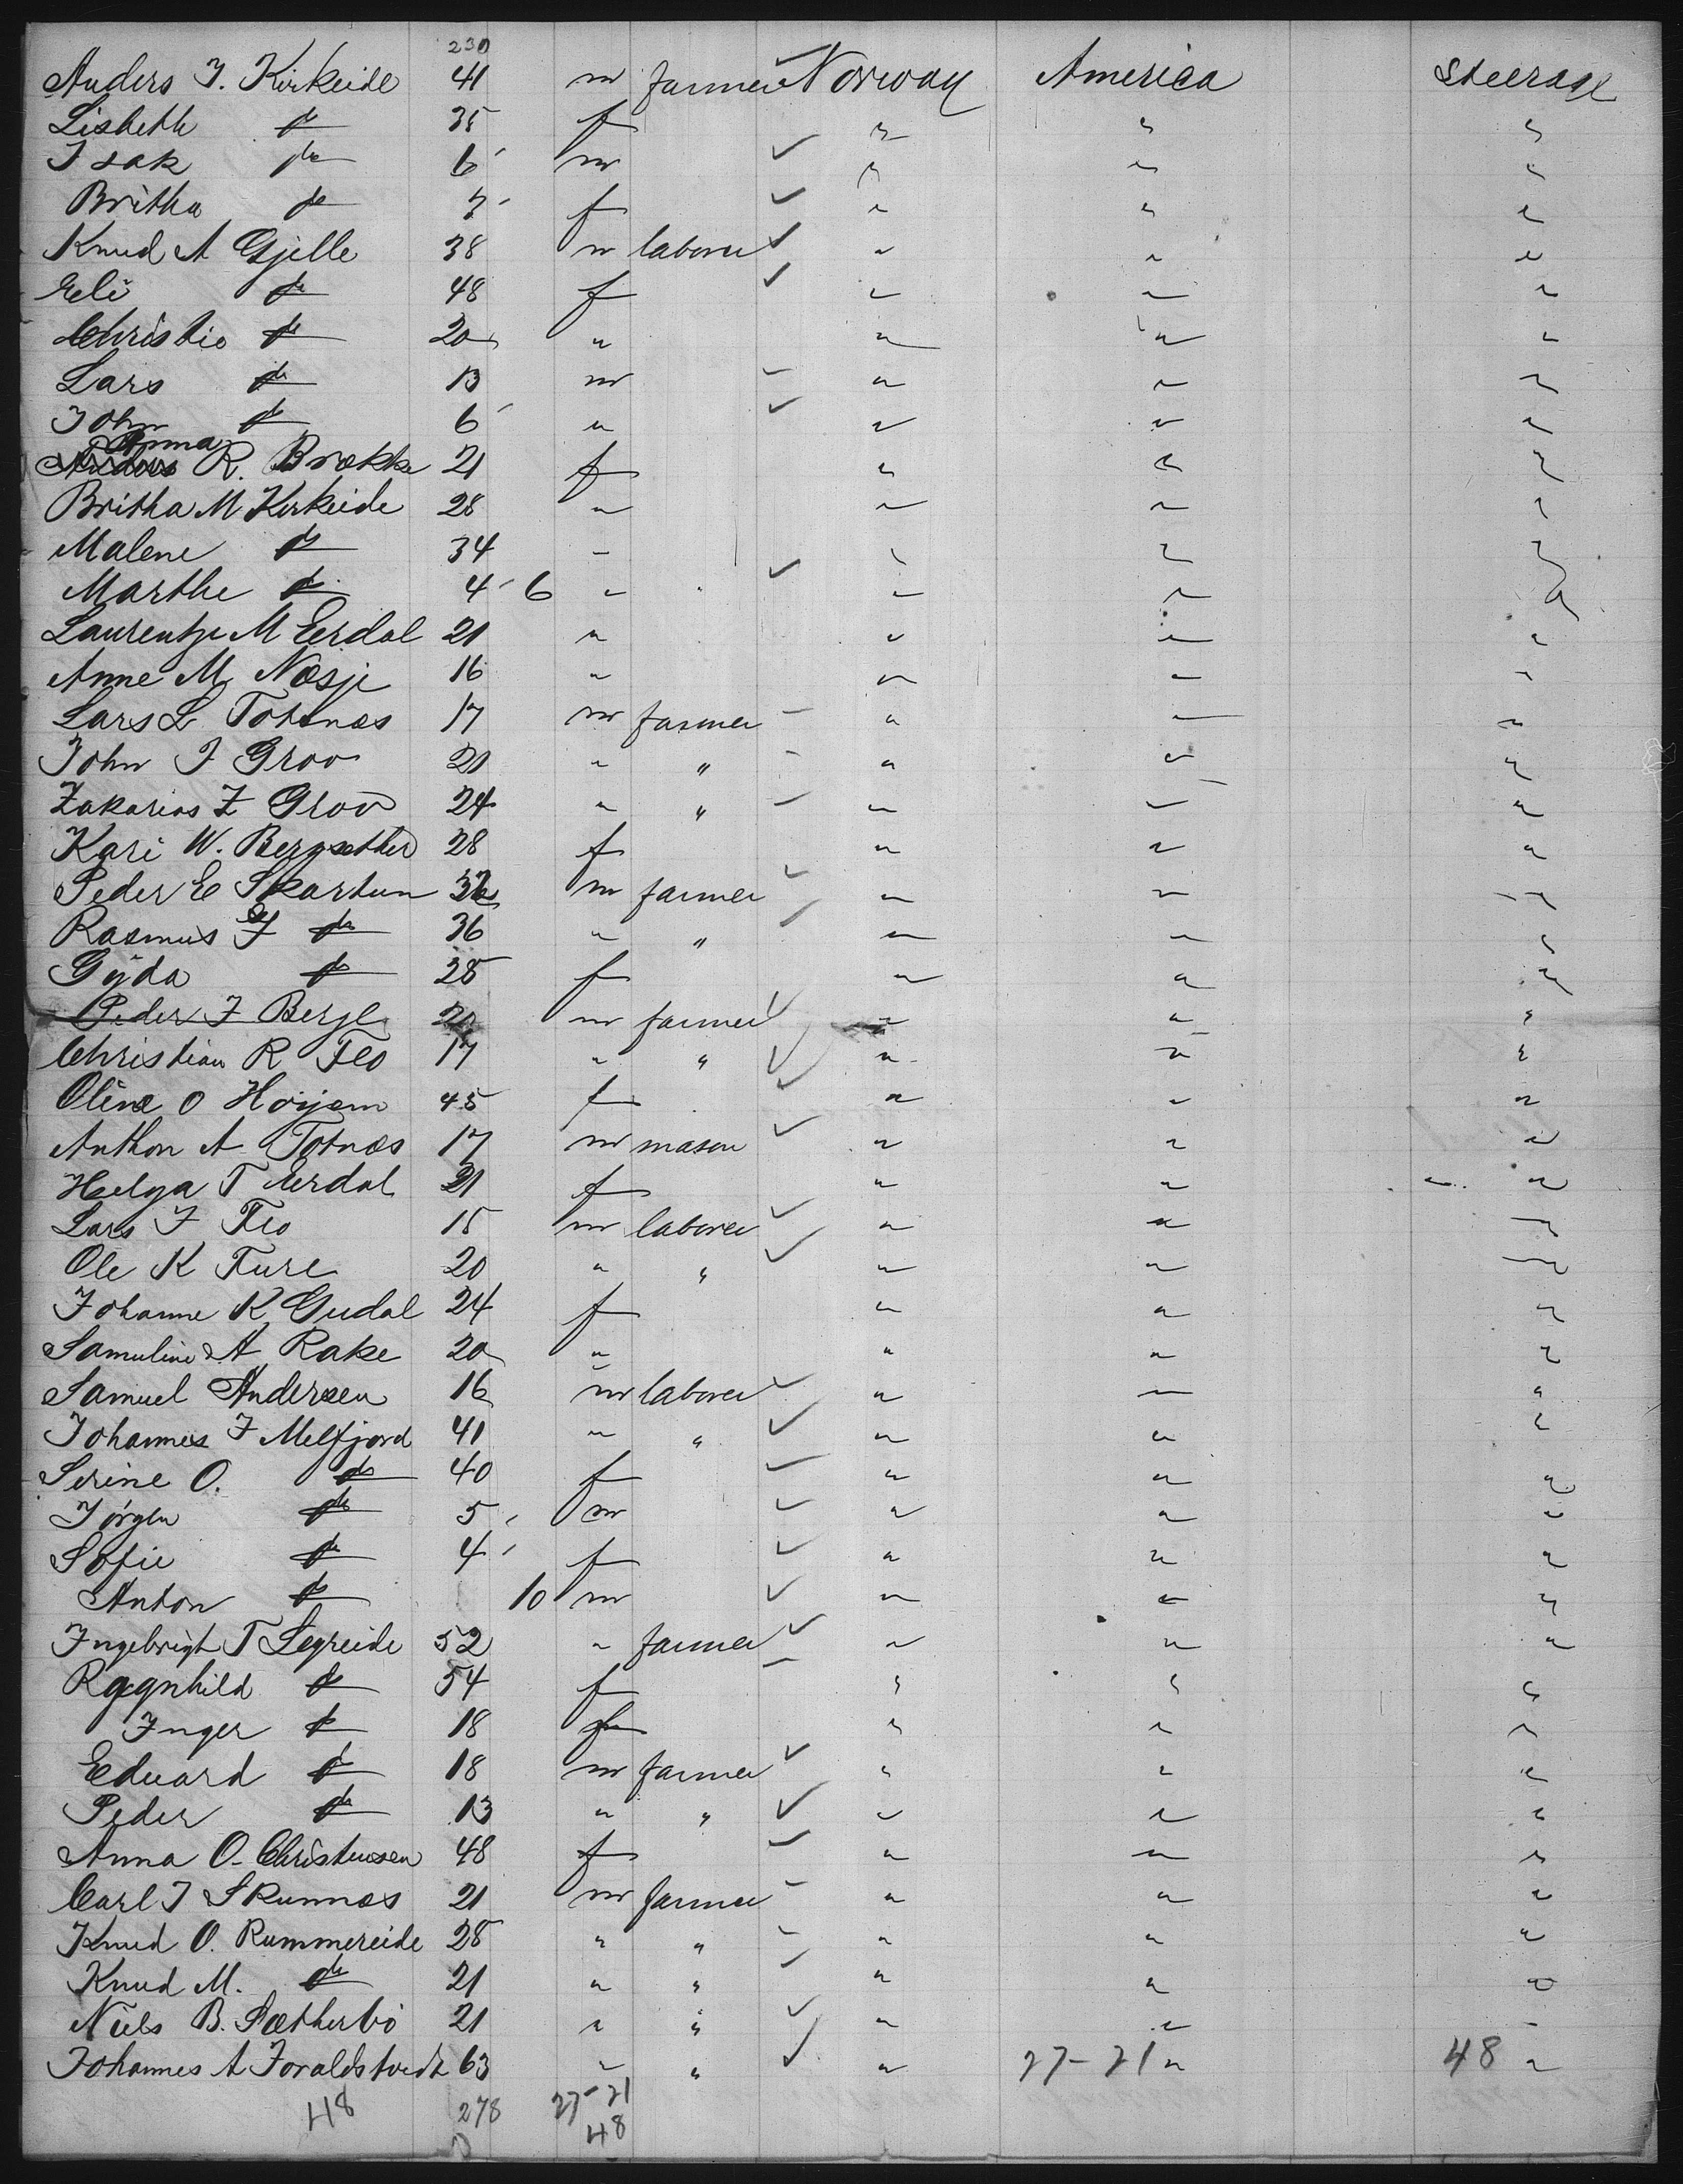 230
Anders J. Kirkeide 41 m farmer Norway America Steerage
Lisbeth do 35 f " " "
Isak do 6 m " " "
Britha do 7 f " " "
Knud A Gjelle 38 m laborer " " "
Eli do 48 f " " "
Christie do 20 " " " "
Lars do 13 m " " "
John do 6 " " " "
Anna
Anders R. Brække 21 f " " "
Britha M Kirkeide 28 " " " "
Malene do 34 " " " "
Marthe do 4 6 " " " "
Laurentze M Eerdal 21 " " " "
Anne M. Næsje 16 " " " "
Lars L Totnæs 17 m farmer " " "
John J Grov 21 " " " " "
Zakarias Z Grov 24 " " " " "
Kari W. Bergsether 28 f " " "
Peder E Skartun m farmer " " "
Rasmus do 36 " " " " "
Gyda do 28 f " " "
Peder J Berge m farmer " " "
Christian R Flo 17 " " " " "
Oline O Hoyjem 45 f " " "
Anthon A Totnæs 17 m mason " " "
Helga T Eerdal 21 f " " "
Lars J Flo 15 m laborer " " "
Ole K Fure 20 " " " " "
Johanne K Gudal 24 f " " "
Samuline A Rake 20 " " " "
Samuel Andersen 16 m laborer " " "
Johannes J Melfjord 41 " " " " "
Serine O. do 40 f " " "
Jørgen do 5 m " " "
Sofie do 4 f " " "
Anton do 10 m " " "
Ingebrigt T Legreide 52 " farmer " " "
Ragnhild do 54 f " " "
Inger do 18 f " " "
Eduard do 18 m farmer " " "
Peder do 13 " " " " "
Anna O. Christensen 48 f " " "
Carl J Skumnæs 21 m farmer " " "
Knud O. Rummereide 28 " " " " "
Knud M. do 21 " " " " "
Niels B. Sætherbø 21 " " " " "
Johannes A Joraldstvedt 63 " " " 27-21 " 48 "
48 278 27-21
48